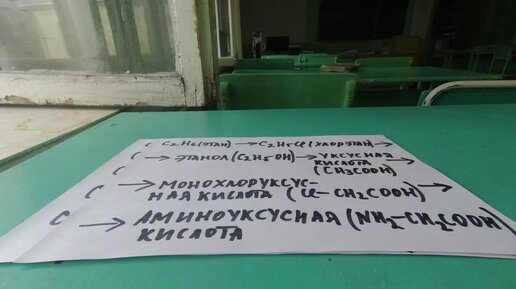 ( C₂H₆(ЭТАН) → C₂H₅Cl(ХЛОРЭТАН) →
( → ЭТАНОЛ(C₂H₅OH) → УКСУСНАЯ
КИСЛОТА
(CH₃COOH)
( → МОНОХЛОРУКСУС-
НАЯ КИСЛОТА (Cl-CH₂COOH) →
С → АМИНОУКСУСНАЯ (NH₂-CH₂COOH)
КИСЛОТА